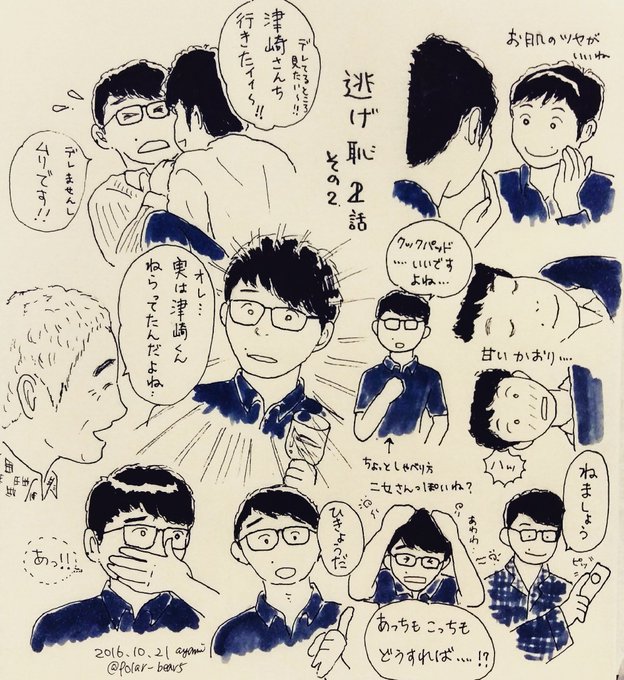 逃げ恥2話
その2.
デレてるところ
見たい〜!!
津崎さんち
行きたイィ〜!!
デレませんし
ムリです!!
お肌のツヤが
いいね
オレ…
実は津崎くん
ねらってたんだよね…
クックパッド
….いいです
よね…
↑
ちょっとしゃべり方
二女さんっぽいね?
甘いかおり….
ハッ
あっ!!
ひきょうだ
あわわ
あっちもこっちも
どうすれば….!?
ねましょう
ピッ
2016.10.21 ayami
@polar-bear5